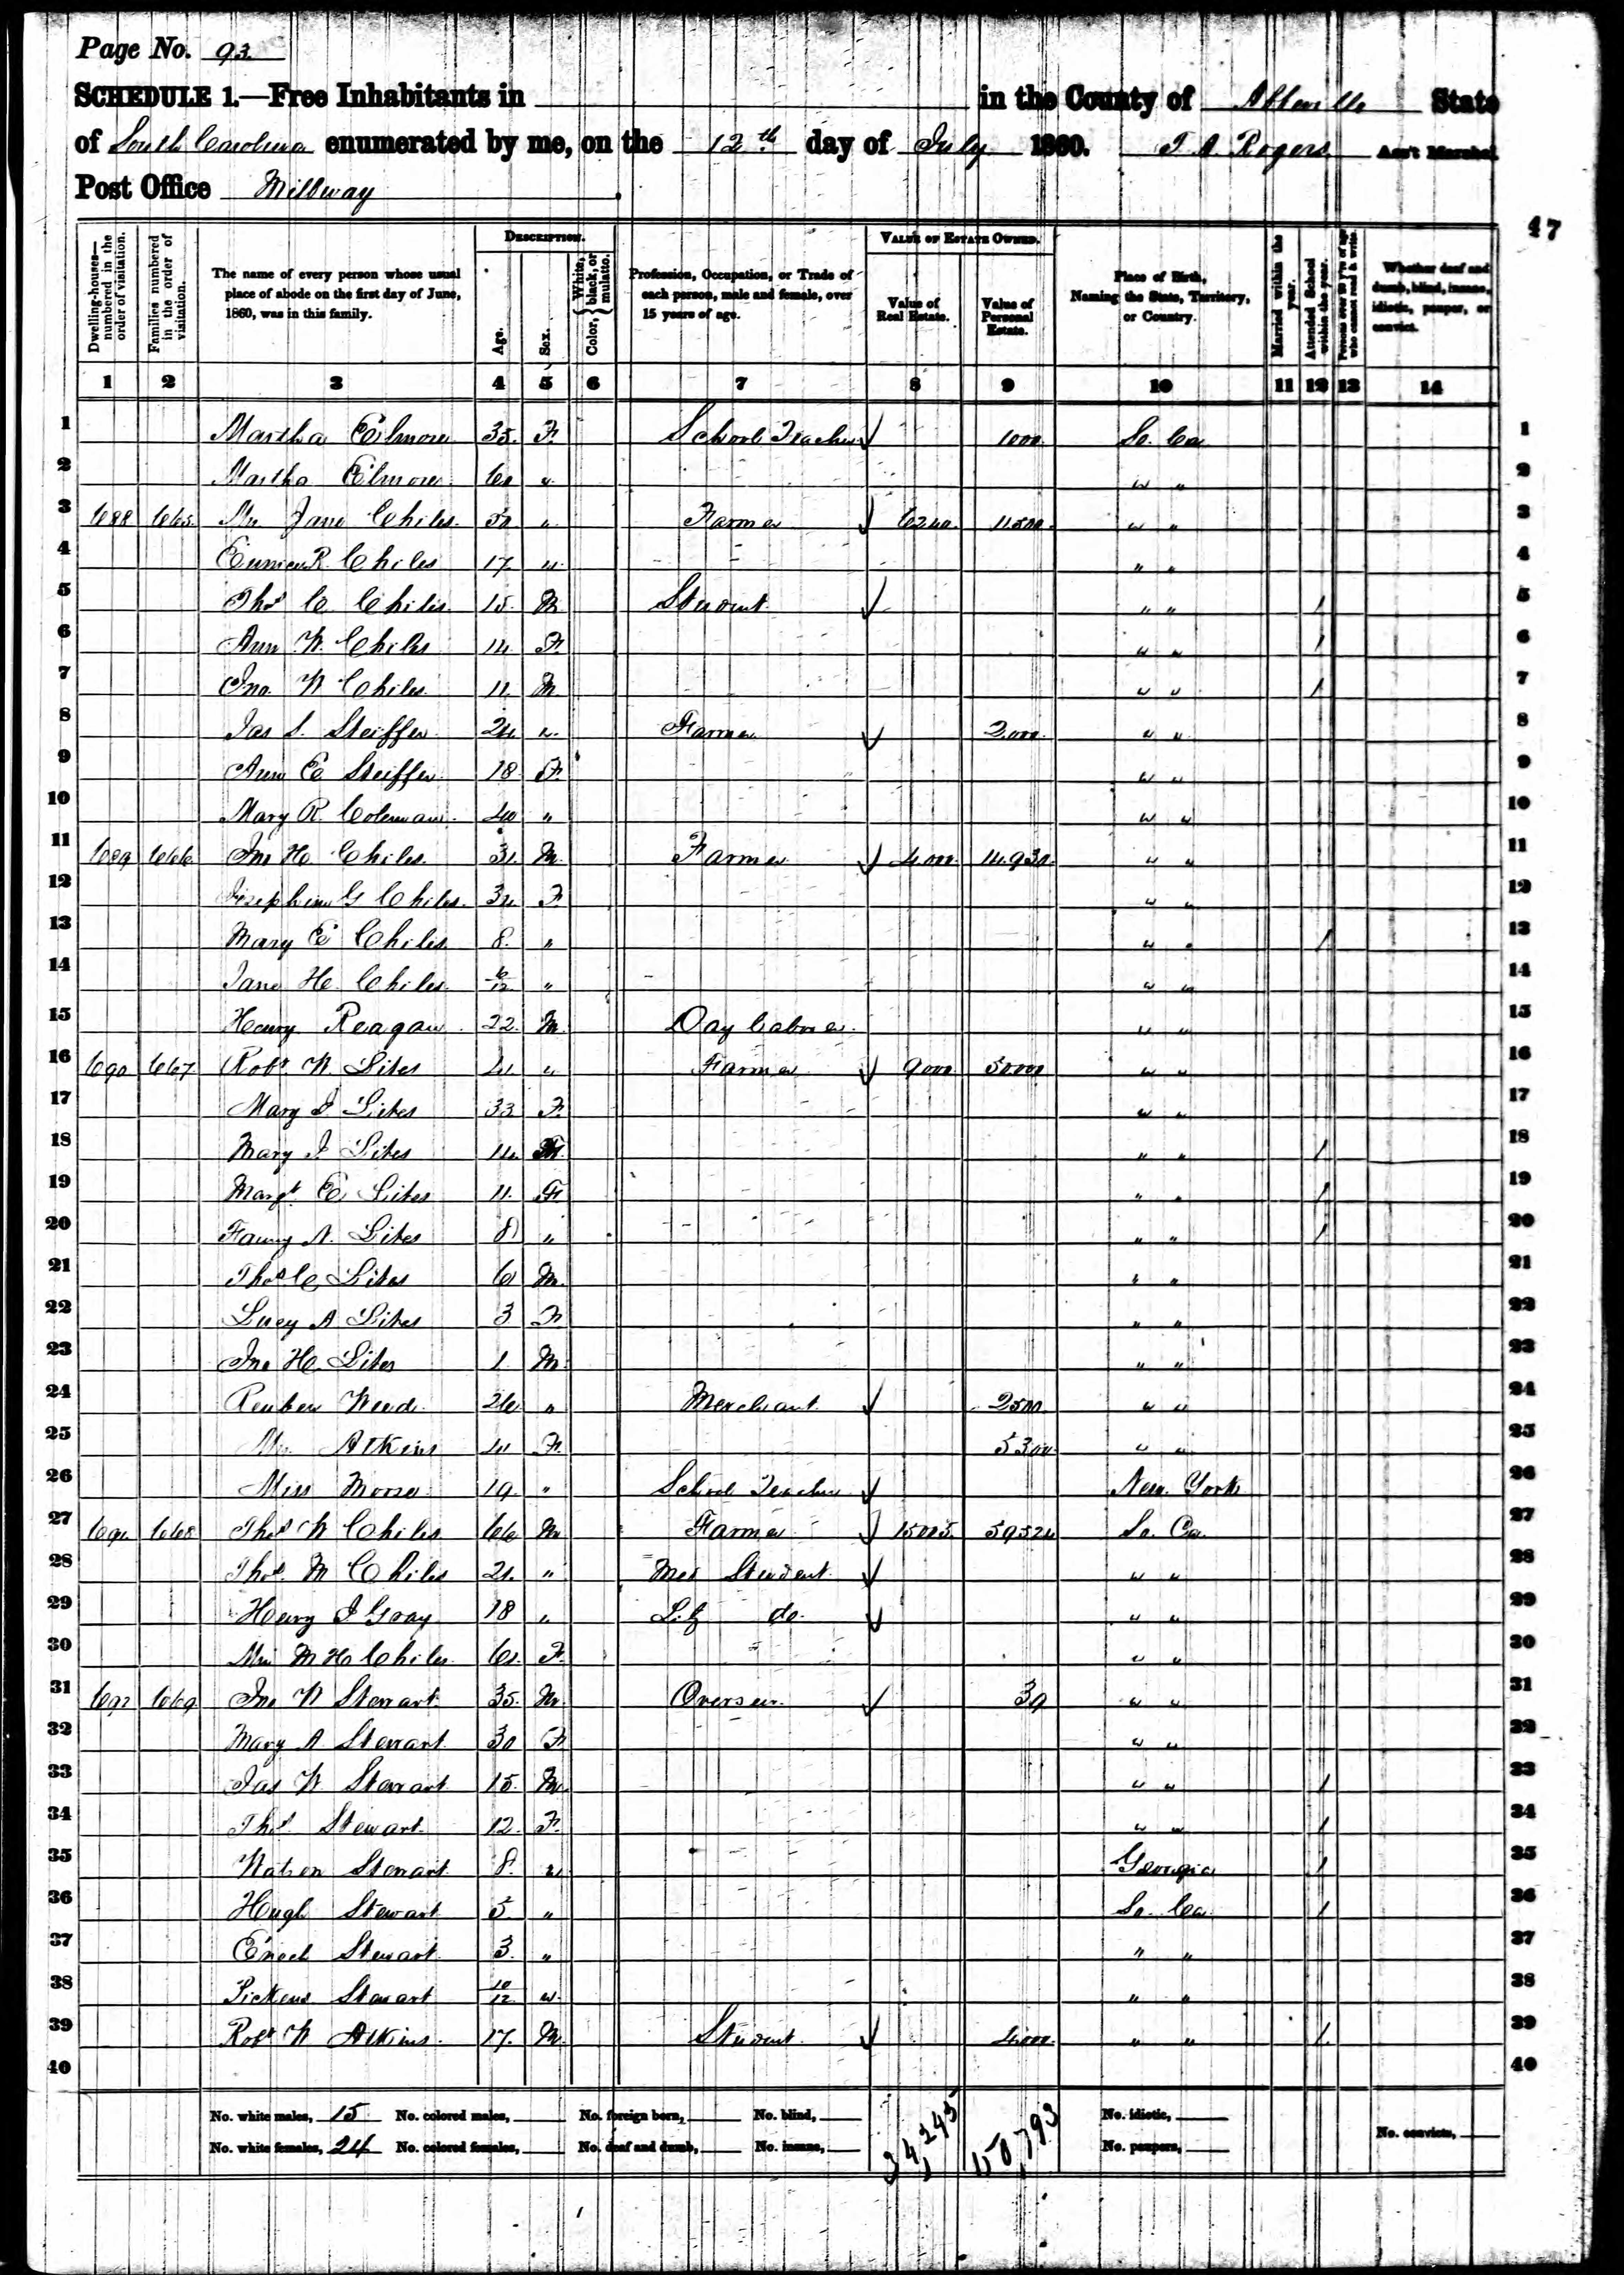 Page No. 93.
SCHEDULE 1.—Free Inhabitants in in the County of Abbeville State
of South Carolina enumerated by me, on the 12th day of July 1860. T A Rogers Ass't Marshal.
Post Office Millway
47
DESCRIPTION. VALUE OF ESTATE OWNED.
Dwelling-houses—numbered in the order of visitation. Families numbered in the order of visitation. The name of every person whose usual place of abode on the first day of June, 1860, was in this family. Age. Sex. Color, {White, black, or mulatto. Profession, Occupation, or Trade of each person, male and female, over 15 years of age. Value of Real Estate. Value of Personal Estate. Place of Birth, Naming the State, Territory, or Country. Married within the year. Attended School within the year. Persons over 20 y'rs of age who cannot read & write. Whether deaf and dumb, blind, insane, idiotic, pauper, or convict.
1 2 3 4 5 6 7 8 9 10 11 12 13 14
1 Martha Elmore 35. F. School Teacher 1000. So. Ca 1
2 Martha Elmore 60 " " " 2
3 688 665. Mrs Jane Chiles. " Farmer 6240. 11500. " " 3
4 Eunice R. Chiles 17 " " " 4
5 Thos C Chiles. 15. M Student " " / 5
6 Ann W. Chiles 14. F. " " / 6
7 Jno. W Chiles. 11. M " " / 7
8 Jas S. Steiffer 24 " Farmer 2.000. " " 8
9 Ann E Steiffer 18 F. " " 9
10 Mary R. Coleman. 40 " " " 10
11 689 666 Jno H. Chiles. M. Farmer 4.000. 14.930. " " 11
12 Josephine G Chiles. F. " " 12
13 Mary E Chiles 8. " " " / 13
14 Jane H. Chiles. 6/12 " " " 14
15 Henry Reagan 22. M. Day Laborer. " " 15
16 690 667 Robt W. Lites 41 " Farmer 9000. 50000 " " 16
17 Mary J Lites 33 F. " " 17
18 Mary J Lites 14. F. " " / 18
19 Margt E Lites 11. F. " " / 19
20 Fanny A. Lites 8 " " " / 20
21 Thos C Lites 6 M. " " 21
22 Lucy A Lites 3 F. " " 22
23 Jno H. Lites 1. M. " " 23
24 Reuben Weed. 26 " Merchant 2500. " " 24
25 Mrs Atkins 41 F. 5300. " " 25
26 Miss Morse 19. " School Teacher New York 26
27 691 668 Thos W Chiles 66 M Farmer 15005. 59524 So. Ca. 27
28 Thos. M Chiles 21. " Med Student " " 28
29 Henry J Gray 18 " Lit do. " " 29
30 M H Chiles. F. " " 30
31 692 669 Jno W Stewart. 35. M. Overseer. 39 " " 31
32 Mary A. Stewart. 30 F " " 32
33 Jas W. Stewart 15. M. " " / 33
34 Thos Stewart. 12. F. " " / 34
35 Watson Stewart 8. " Georgia / 35
36 Hugh Stewart 5. " So. Ca. / 36
37 Enoch Stewart. 3. " " " 37
38 Pickens Stewart 10/12 " " " 38
39 Robt W Atkins. 17. M. Student 4.000. " " / 39
40 40
No. white males, 15 No. colored males, No. foreign born, No. blind, 34,245 150,793 No. idiotic,
No. white females, 24 No. colored females, No. deaf and dumb, No. insane, No. paupers, No. convicts,